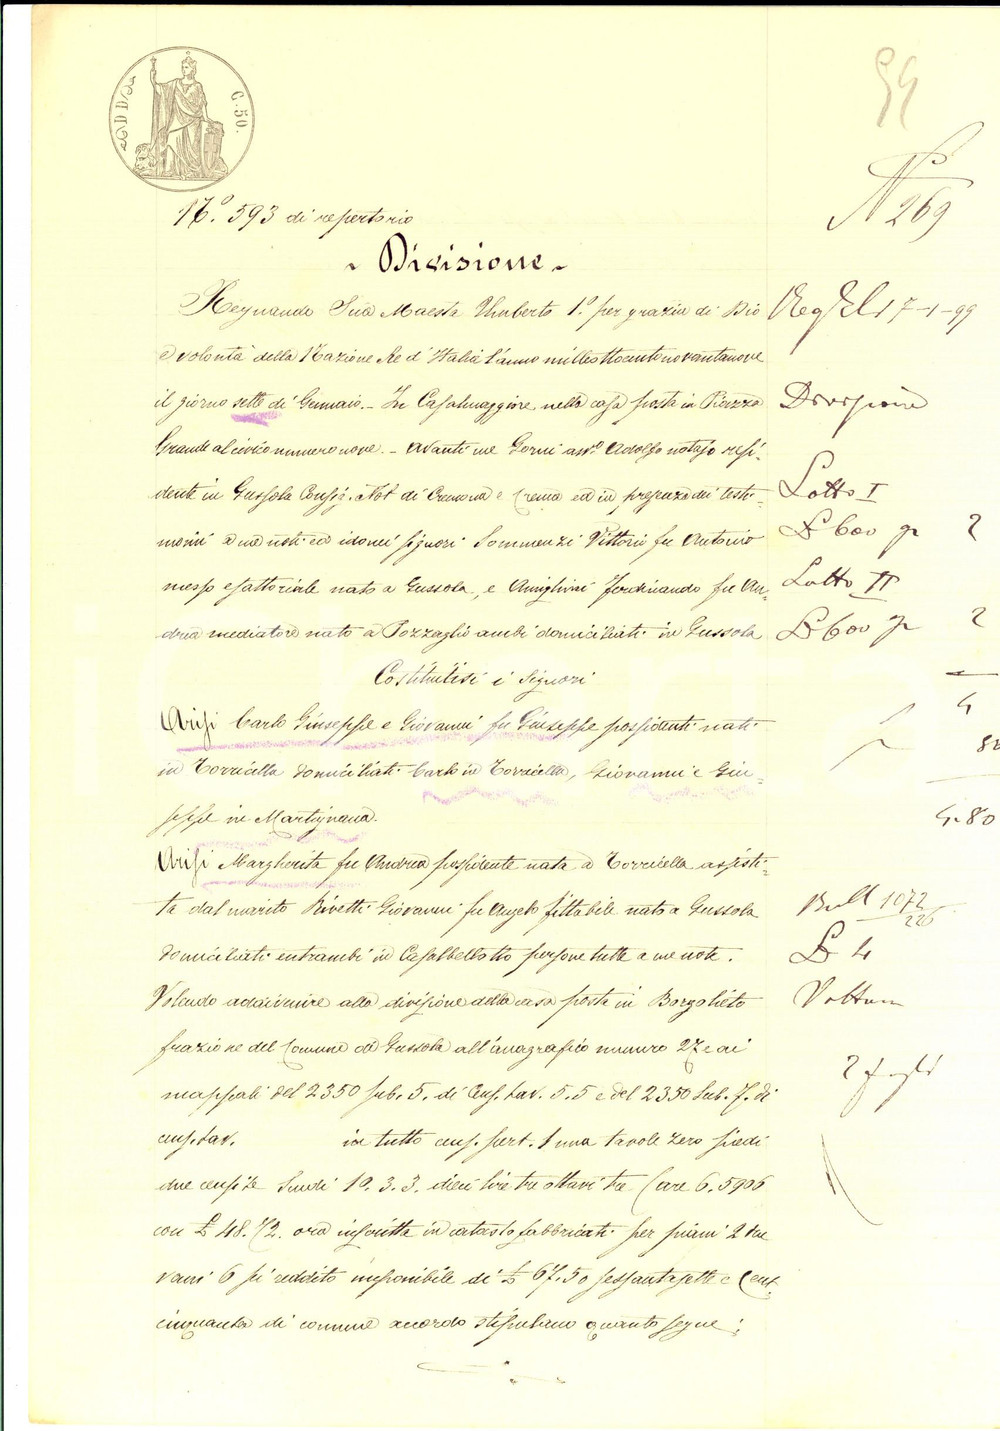 C. 50.
99
N° 269
N.° 593 di repertorio
Divisione
Regnando Sua Maestà Umberto 1.° per grazia di Dio
e volontà della Nazione Re d'Italia l'anno milleottocentonovantanove
il giorno sette di Gennaio. - In Casalmaggiore nella casa posta in Piazza
Grande al civico numero nove. - Avanti me Gorni avv.° Adolfo notajo resi-
dente in Gussola Consig. Not. di Cremona e Crema ed in presenza dei testi-
monii a me noti ed idonei signori Sommenzi Vittorio fu Antonio
messo esattoriale nato a Gussola, e Aimghini Ferdinando fu An-
drea mediatore nato a Pozzaglio ambi domiciliati in Gussola
Costituitisi i Signori
Arisi Carlo Giuseppe e Giovanni fu Giuseppe possidenti nati
in Torricella domiciliati Carlo in Torricella, Giovanni e Giu-
seppe in Martignana.
Arisi Margherita fu Andrea possidente nata a Torricella assisti-
ta dal marito Rivetti Giovanni fu Angelo fittabile nato a Gussola
domiciliati entrambi in Casalbellotto persone tutte a me note.
Volendo addivenire alla divisione della casa posta in Borgolieto
frazione del Comune di Gussola all'anagrafico numero 27 e ai
mappali del 2350 sub. 5. di Cens. tav. 5.5 e del 2350 Sub. 7. di
cens. tav. in tutto cens. pert. 1 una tavole zero piedi
due censite Scudi 10. 3. 3. dieci lire tre ottavi tre (are 6.5906
con £ 48.72. ora inscritta in catasto fabbricati per piani 2 due
vani 6 di reddito imponibile di £ 67.50 sessantasette e Cent.
cinquanta di comune accordo stipulano quanto segue:
17-1-99
Divisione
Lotto I
£ 600 2
Lotto II
£ 600 2
4
80
4.80
Boll 1072
226
£ 4
2 fogli